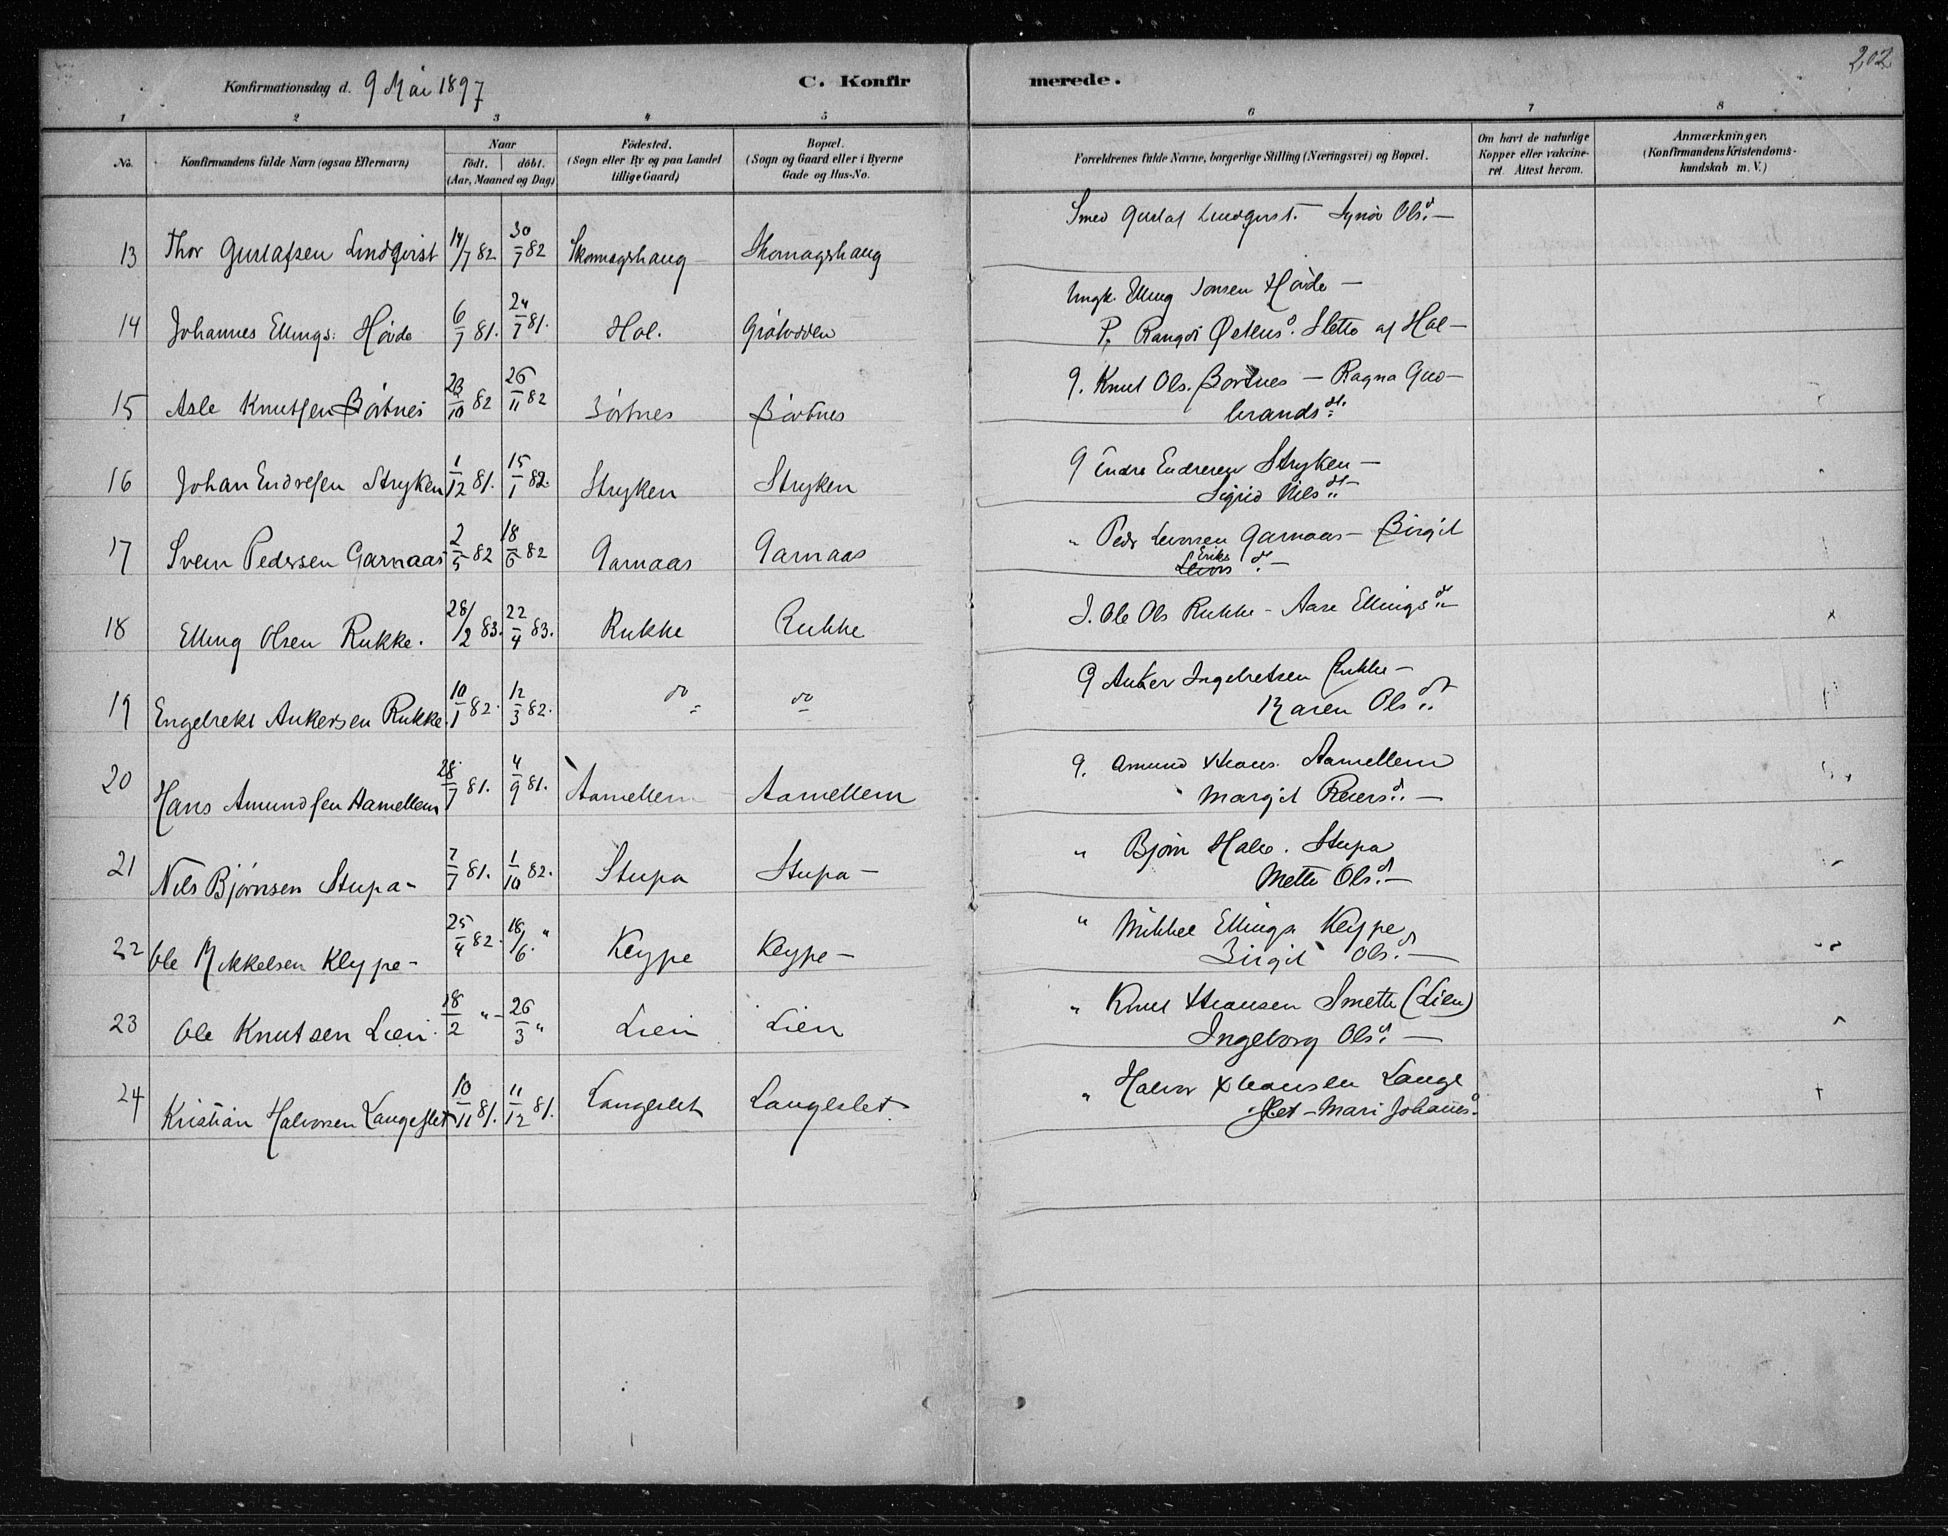 202
Konfirmationsdag d. 9 Mai 1897 C. Konfirmerede.
1 2 3 4 5 6 7 8
No. Konfirmandens fulde Navn (ogsaa Efternavn) Naar født. døbt. (Aar, Maaned og Dag) Fødested. (Sogn eller By og paa Landet tillige Gaard) Bopæl. (Sogn og Gaard eller i Byerne Gade og Hus-No. Forældrenes fulde Navne, borgerlige Stilling (Næringsvei) og Bopæl. Om havt de naturlige Kopper eller vakcineret. Attest herom. Anmærkninger. (Konfirmandens Kristendomskundskab m. V.)
13 Thor Gustafsen Lindqvist 14/7 82 30/7 82 Skomagerhaug Skomagerhaug Smed Gustaf Lindqvist. — Synøv Olsd. —
14 Johannes Ellings: Høvde 6/7 81. 24/7 81. Hol. Ungk. Elling Jonsen Høvde —
P. Rangdi Østensd. Sletto af Hol —
15 Asle Knutsen Børtnes 23/10 82 26/11 82 Børtnes Børtnes G. Knut Ols. Børtnes — Ragna Gud-
brandsdt.
16 Johan Endresen Stryken 1/12 81. 15/1 82. Stryken Stryken G Endre Endresen Stryken —
Sigrid Nilsdt. —
17 Svein Pedersen Garnaas 2/5 82 18/6 82 Garnaas Garnaas " Peder Levorsen Garnaas — Birgit
Eriks
Levors d. —
18 Elling Olsen Rukke. 28/2 83. 22/4 83. Rukke Rukke I. Ole Ols Rukke — Aase Ellingsd. — x
19 Engebrekt Ankersen Rukke. 10/1 82. 12/3 82. do do G Anker Ingebretsen Rukke —
Karen Olsdt
20 Hans Amundsen Aamellem 28/7 81. 4/9 81. Aamellem Aamellem G. Amund Hans. Aamellem
Margit Reiersd. —
21 Nils Bjørnsen Stupa — 7/7 81. 1/10 82. Stupa Stupa — " Bjørn Halv. Stupa
Mette Olsd. —
22 Ole Mikkelsen Kleppe — 25/4 82. 18/6. " Kleppe Kleppe — " Mikkel Ellings. Kleppe
Birgit Olsd. —
23 Ole Knutsen Lien. 18/2 " 26/3 " Lien Lien " Knut Hansen Smette (Lien)
Ingeborg Olsd. —
24 Kristian Halvorsen Langeslet 10/11 81. 11/12 81. Langeslet Langeslet " Halvor Hansen Lange
slet — Mari Johannesd. +